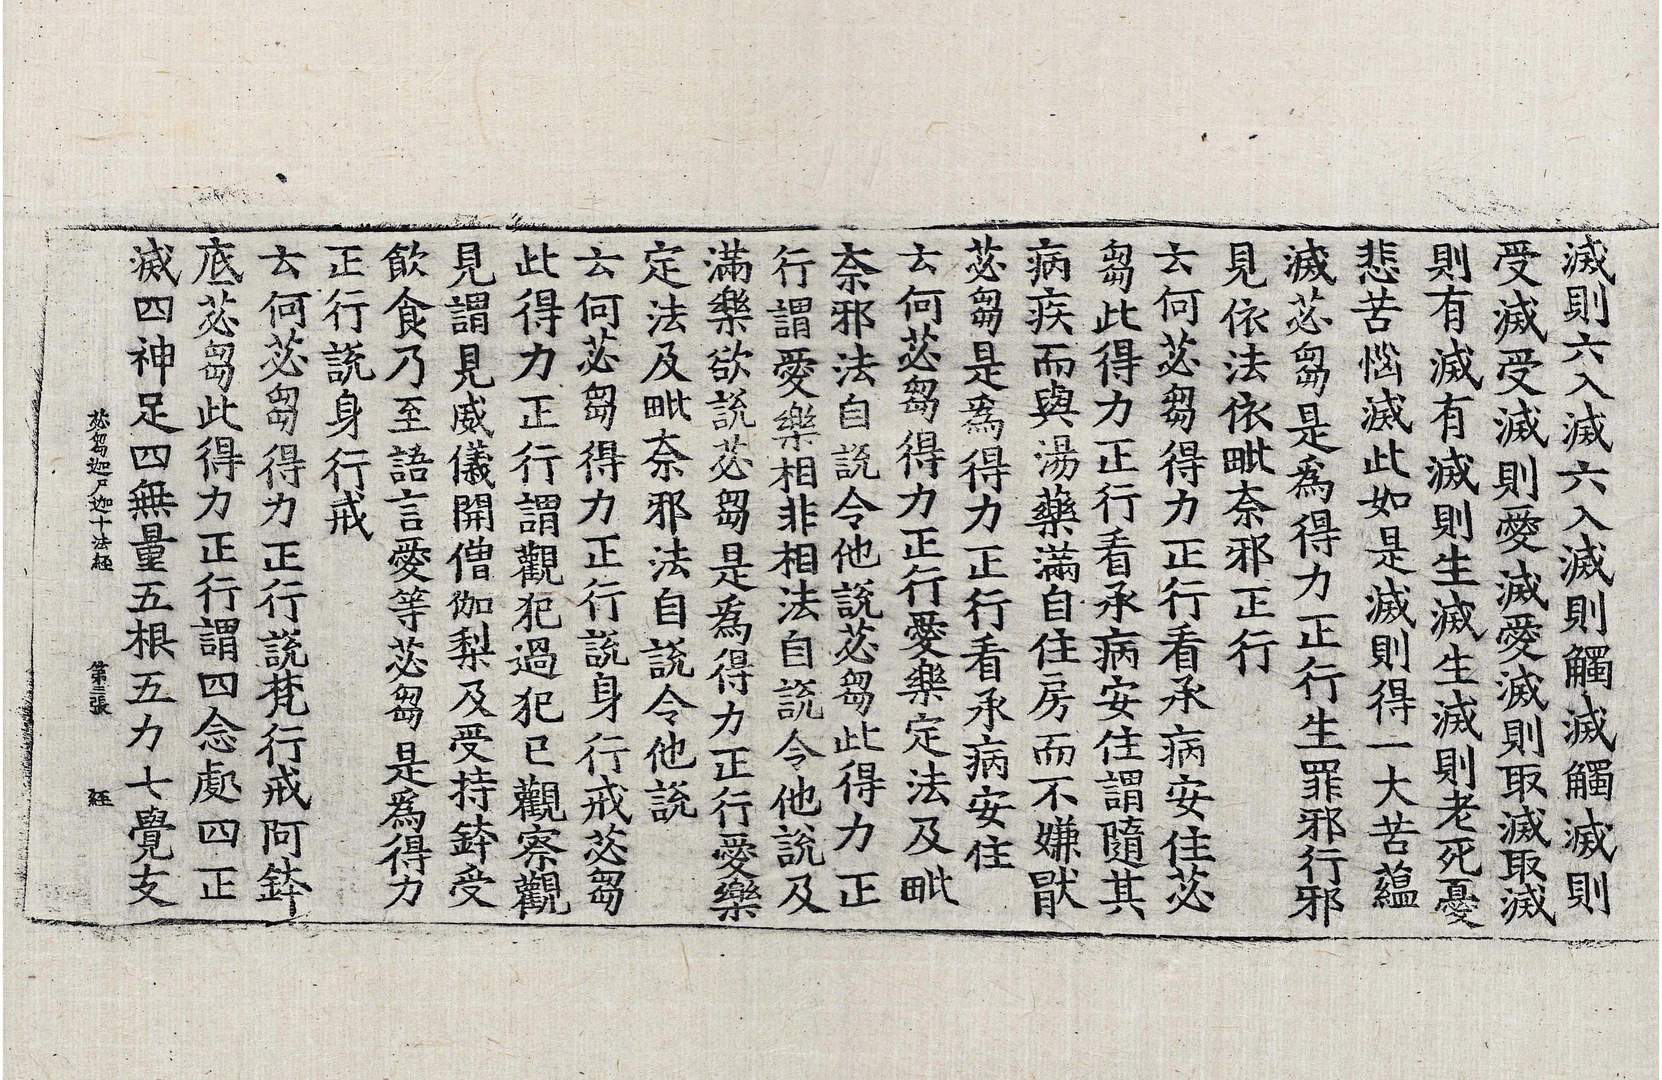 滅則六入滅六入滅則觸滅觸滅則
受滅受滅則愛滅愛滅則取滅取滅
則有滅有滅則生滅生滅則老死憂
悲苦惱滅此如是滅則得一大苦蘊
滅苾芻是爲得力正行生罪邪行邪
見依法依毗奈邪正行
云何苾芻得力正行看承病安住苾
芻此得力正行看承病安住謂隨其
病疾而與湯藥滿自住房而不嫌猒
苾芻是爲得力正行看承病安住
云何苾芻得力正行愛樂定法及毗
奈邪法自說令他說苾芻此得力正
行謂愛樂相非相法自說令他說及
滿樂欲說苾芻是爲得力正行愛樂
定法及毗奈邪法自說令他說
云何苾芻得力正行說身行戒苾芻
此得力正行謂觀犯過犯已觀察觀
見謂見威儀開僧伽梨及受持鉢受
飲食乃至語言愛等苾芻是爲得力
正行說身行戒
云何苾芻得力正行說梵行戒阿鉢
底苾芻此得力正行謂四念處四正
滅四神足四無量五根五力七覺支
苾芻迦尸迦十法經 第三張 經